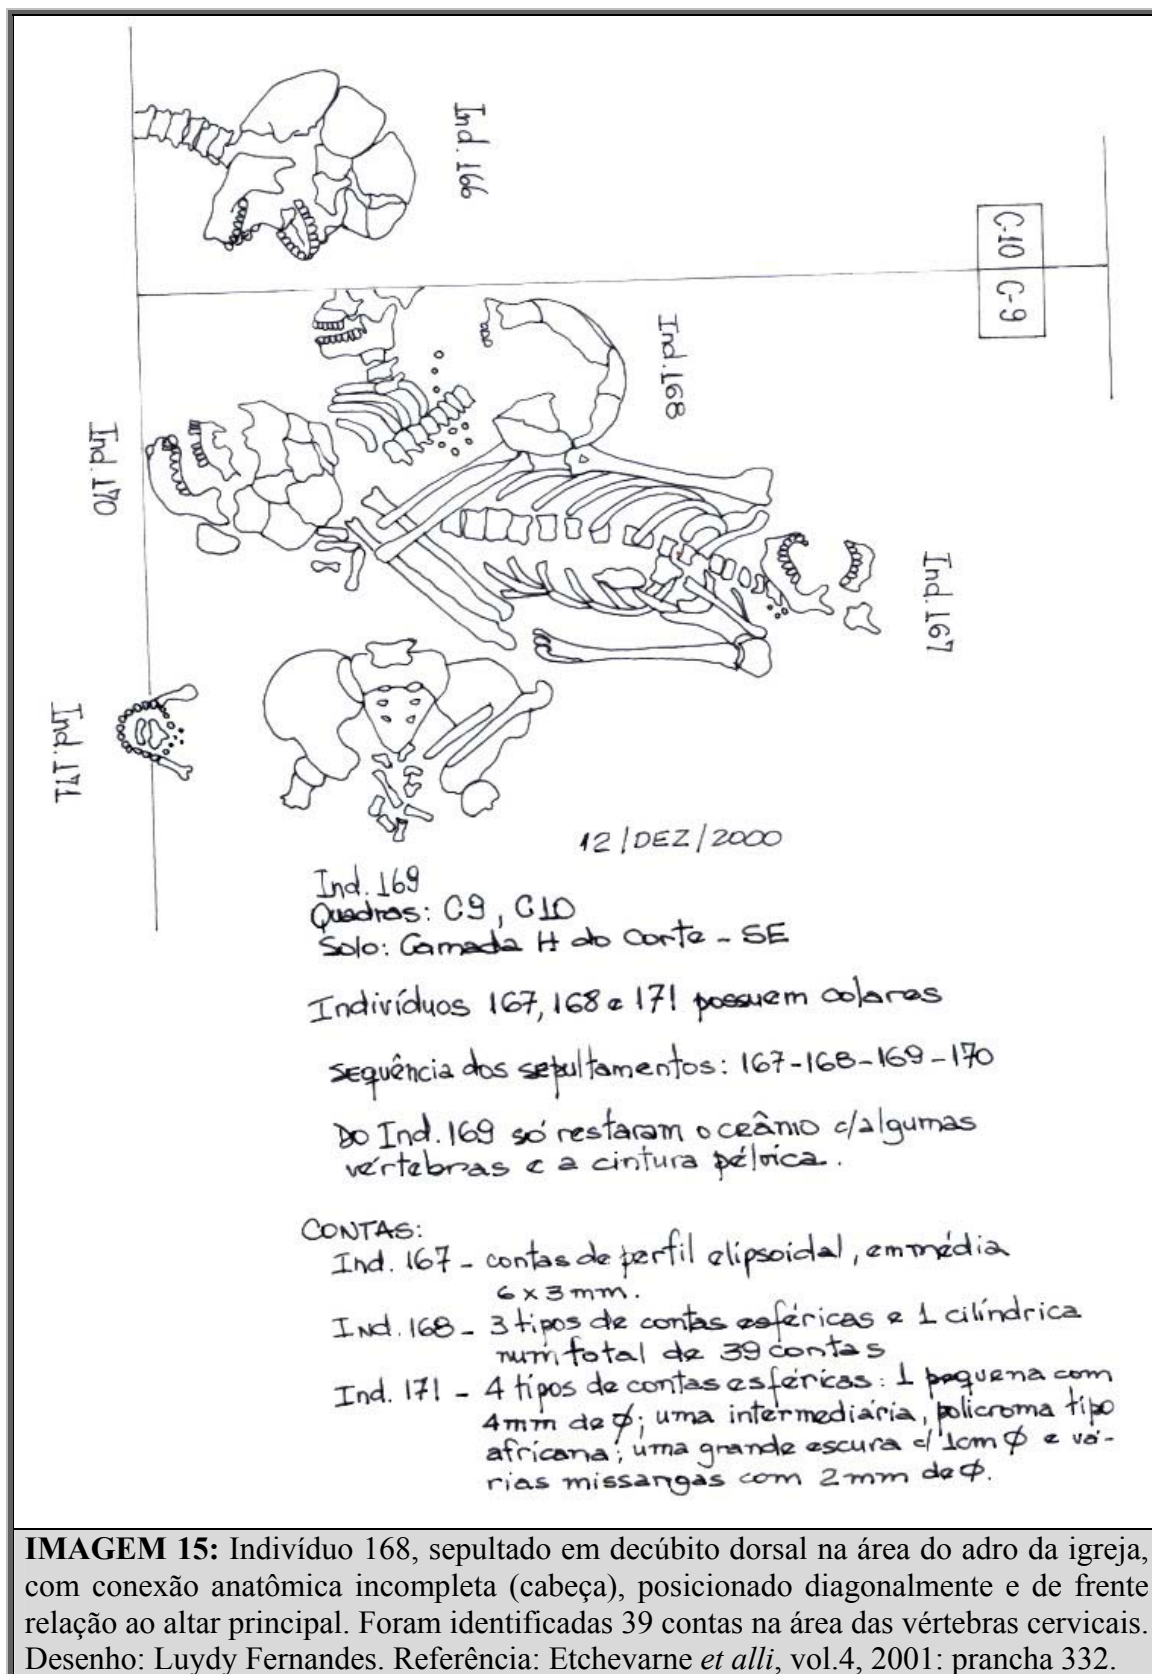 Ind. 166
C-10
C-9
Ind. 168
Ind. 170
Ind. 167
Ind. 171
12/DEZ/2000
Ind. 169
Quadras: C9, C10
Solo: Camada H do Corte - SE
Indivíduos 167, 168 e 171 possuem colares
Sequência dos sepultamentos: 167-168-169-170
Do Ind. 169 só restaram o ceânio c/algumas
vértebras e a cintura pélvica.
CONTAS:
Ind. 167 - contas de perfil elipsoidal, em média
6 x 3 mm.
Ind. 168 - 3 tipos de contas esféricas e 1 cilíndrica
num total de 39 contas
Ind. 171 - 4 tipos de contas esféricas: 1 pequena com
4mm de ϕ; uma intermediária, policroma tipo
africana; uma grande escura c/ 1cm ϕ e vá-
rias missangas com 2mm de ϕ.
IMAGEM 15: Indivíduo 168, sepultado em decúbito dorsal na área do adro da igreja,
com conexão anatômica incompleta (cabeça), posicionado diagonalmente e de frente
relação ao altar principal. Foram identificadas 39 contas na área das vértebras cervicais.
Desenho: Luydy Fernandes. Referência: Etchevarne et alli, vol.4, 2001: prancha 332.